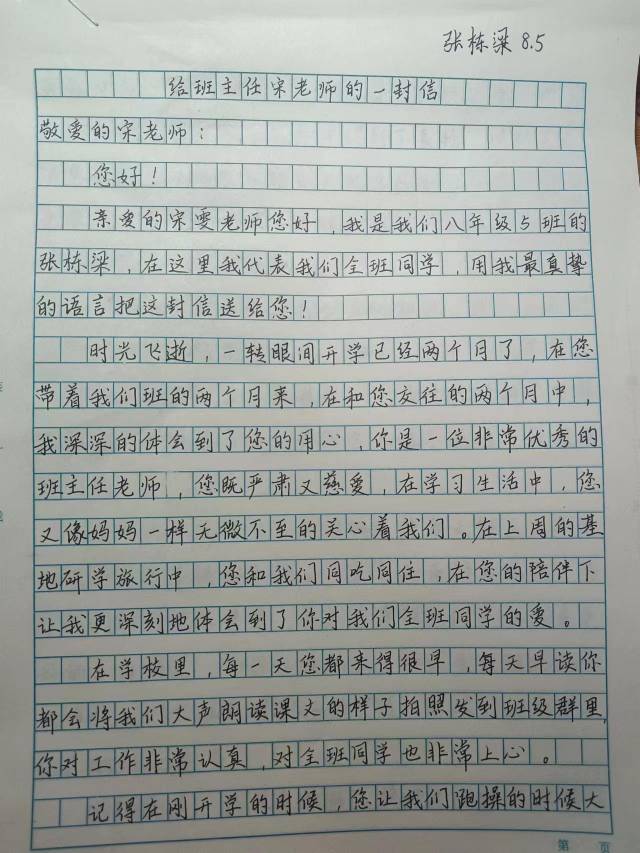 张栋梁 8.5
给班主任宋老师的一封信
敬爱的宋老师：
您好！
亲爱的宋雯老师您好，我是我们八年级5班的
张栋梁，在这里我代表我们全班同学，用我最真挚
的语言把这封信送给您！
时光飞逝，一转眼间开学已经两个月了，在您
带着我们班的两个月来，在和您交往的两个月中，
我深深的体会到了您的用心，你是一位非常优秀的
班主任老师，您既严肃又慈爱，在学习生活中，您
又像妈妈一样无微不至的关心着我们。在上周的基
地研学旅行中，您和我们同吃同住，在您的陪伴下
让我更深刻地体会到了你对我们全班同学的爱。
在学校里，每一天您都来得很早，每天早读你
都会将我们大声朗读课文的样子拍照发到班级群里，
你对工作非常认真，对全班同学也非常上心。
记得在刚开学的时候，您让我们跑操的时候大
第 页